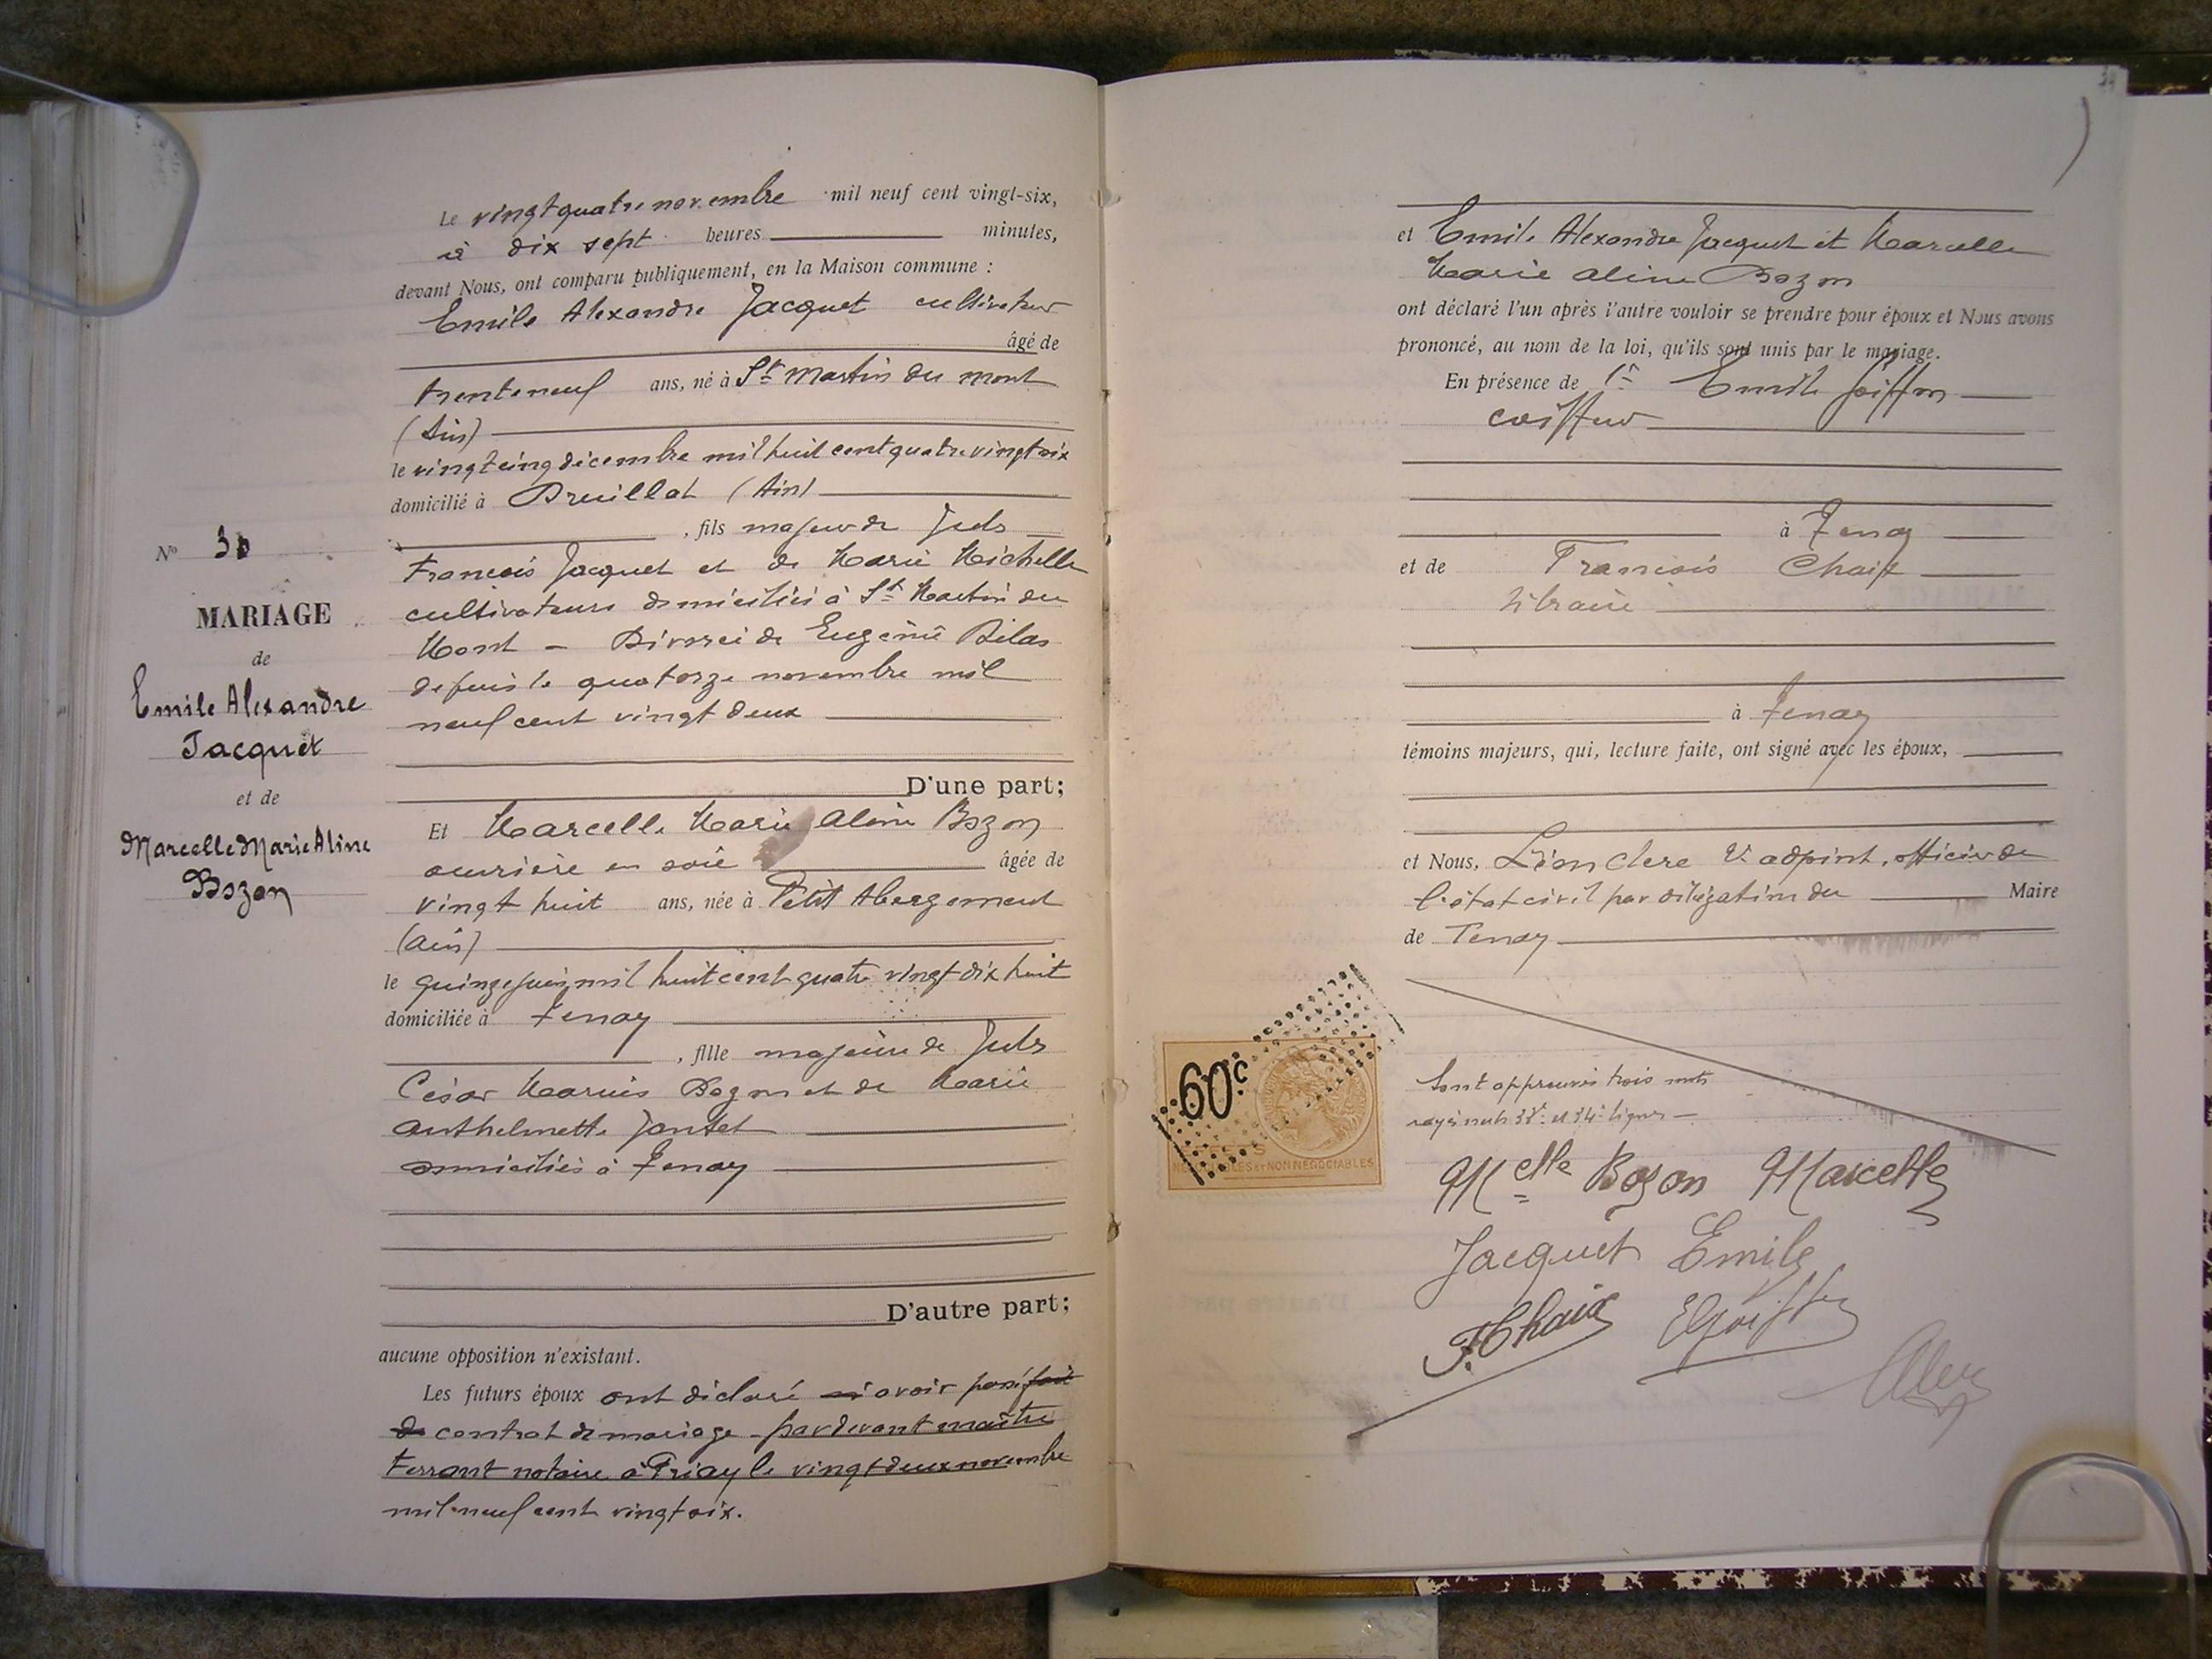 Le vingt quatre novembre mil neuf cent vingt-six,
à dix sept heures minutes,
devant Nous, ont comparu publiquement, en la Maison commune :
Emile Alexandre Jacquet cultivateur
âgé de
trente neuf ans, né à St Martin du mont
(Ain)
le vingt cinq décembre mil huit cent quatre vingt six
domicilié à Druillat (Ain)
, fils majeur de Jules
François Jacquet et de Marie Michelle
cultivateurs domiciliés à St Martin du
Mont - Divorcé de Eugénie Bilas
depuis le quatorze novembre mil
neuf cent vingt deux
D'une part;
Et Marcelle Marie Aline Bozon
ouvrière en soie âgée de
vingt huit ans, née à Petit Abergement
(Ain)
le quinze juin mil huit cent quatre vingt dix huit
domiciliée à Tenay
, fille majeure de Jules
César Marius Bozon et de Marie
Anthelmette Jantet
domiciliés à Tenay
D'autre part;
aucune opposition n'existant.
Les futurs époux ont déclaré avoir passé fait
de contrat de mariage par devant maître
Ferrant notaire à Priay le vingt deux novembre
mil neuf cent vingt six.
N° 30
MARIAGE
de
Emile Alexandre
Jacquet
et de
Marcelle Marie Aline
Bozon
et Emile Alexandre Jacquet et Marcelle
Marie Aline Bozon
ont déclaré l'un après l'autre vouloir se prendre pour époux et Nous avons
prononcé, au nom de la loi, qu'ils sont unis par le mariage.
En présence de Emile Goiffon
coiffeur
à Tenay
et de François Chaix
libraire
à Tenay
témoins majeurs, qui, lecture faite, ont signé avec les époux,
et Nous, Léon Clerc adjoint, officier de
l'état civil par délégation du Maire
de Tenay
60c
NON NÉGOCIABLES
Sont approuvés trois mots
rayés nuls 33e et 34e lignes
Melle Bozon Marcelle
Jacquet Emile
F. Chaix EGoiffon